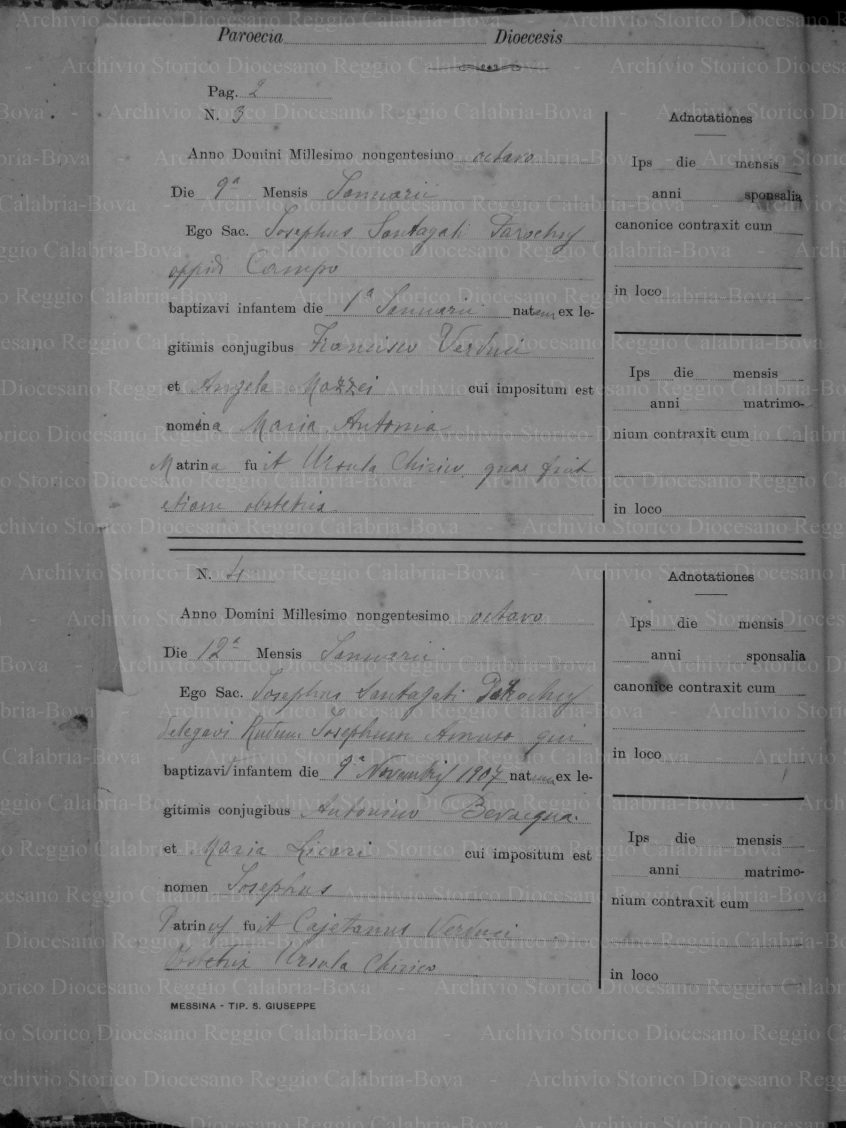 Paroecia Dioecesis
Pag. 2
N. 3
Anno Domini Millesimo nongentesimo octavo
Die 9ª Mensis Januarii
Ego Sac. Josephus Santagati Parochus
oppidi Campo
baptizavi infantem die 1ª Januarii natam ex le-
gitimis conjugibus Francisco Verduci
et Angela Mazzei cui impositum est
nomina Maria Antonia
Matrina fuit Ursula Chirico quae fuit
etiam obstetrix
Adnotationes
Ips die mensis
anni sponsalia
canonice contraxit cum
in loco
Ips die mensis
anni matrimo-
nium contraxit cum
in loco
N. 4
Anno Domini Millesimo nongentesimo octavo
Die 12ª Mensis Januarii
Ego Sac. Josephus Santagati Parochus
delegavi Josephum Amuso qui
baptizavit infantem die 9ª Novembris 1907 natum ex le-
gitimis conjugibus Antonino Bevacqua
et Maria Licari cui impositum est
nomen Josephus
Patrinus fuit Cajetanus Verduci
Obstetrix Ursula Chirico
Adnotationes
Ips die mensis
anni sponsalia
canonice contraxit cum
in loco
Ips die mensis
anni matrimo-
nium contraxit cum
in loco
MESSINA - TIP. S. GIUSEPPE
Archivio Storico Diocesano Reggio Calabria-Bova